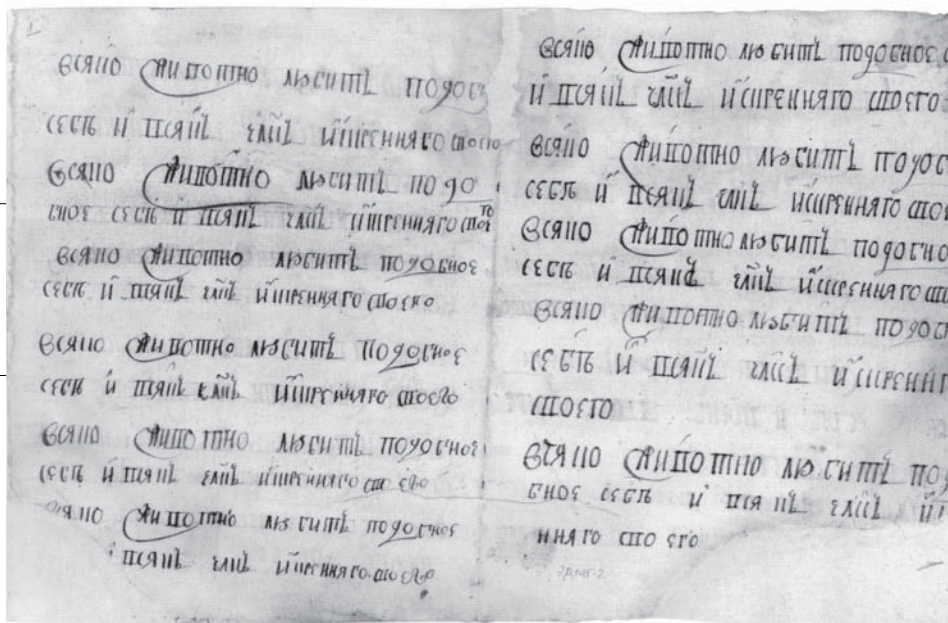 всяко животно любитъ подоб
себѣ и всякъ члкъ искренняго своего
всяко животно любитъ подо
бное себѣ и всякъ члкъ искренняго своего
всяко животно любитъ подобное
себѣ и всякъ члкъ искренняго своего
всяко животно любитъ подобное
себѣ и всякъ члкъ искренняго своего
всяко животно любитъ подобное
себѣ и всякъ члкъ искренняго своего
всяко животно любитъ подобное
всякъ члкъ искренняго своего
всяко животно любитъ подобное
и всякъ члкъ искренняго своего
всяко животно любитъ подоб
себѣ и всякъ члкъ искренняго свое
всяко животно любитъ подобно
себѣ и всякъ члкъ искренняго сво
всяко животно любитъ подоб
себѣ и всякъ члкъ искренняг
своего
всяко животно любитъ подо
бное себѣ и всякъ члкъ
нняго своего